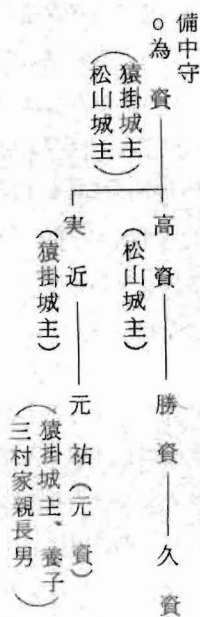 備中守
○為資
（猿掛城主
松山城主）
高資
（松山城主）
勝資
久資
実近
（猿掛城主）
元祐（元資）
（猿掛城主、養子
三村家親長男）